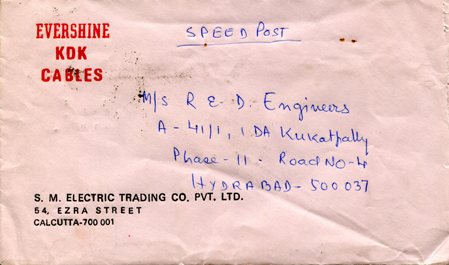 EVERSHINE
KDK
CABLES
SPEED POST
M/S R E. D. Engineers
A - 41/1, IDA Kukatpally
Phase - 11 - Road No-4
HYDRABAD - 500037
S. M. ELECTRIC TRADING CO. PVT. LTD.
54, EZRA STREET
CALCUTTA-700 001